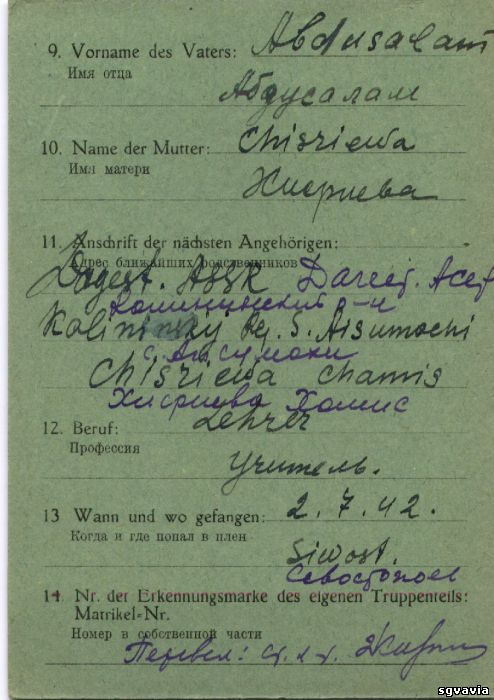 9. Vorname des Vaters: Abdusalam
Имя отца
Абдусалам
10. Name der Mutter: Chisriewa
Имя матери
Хисриева
11. Anschrift der nächsten Angehörigen:
Адрес ближайших родственников
Dagest. ASSR Дагест. АССР
Калининский р-н
Kalininskij Rg. S. Aisumachi
с. Айсумахи
Chisriewa Chamis
Хисриева Хамис
12. Beruf: Lehrer
Профессия
Учитель.
13 Wann und wo gefangen: 2.7.42.
Когда и где попал в плен
Siwost.
Севостополь
14. Nr. der Erkennungsmarke des eigenen Truppenteils:
Matrikel-Nr.
Номер в собственной части
Перевел:
sgvavia